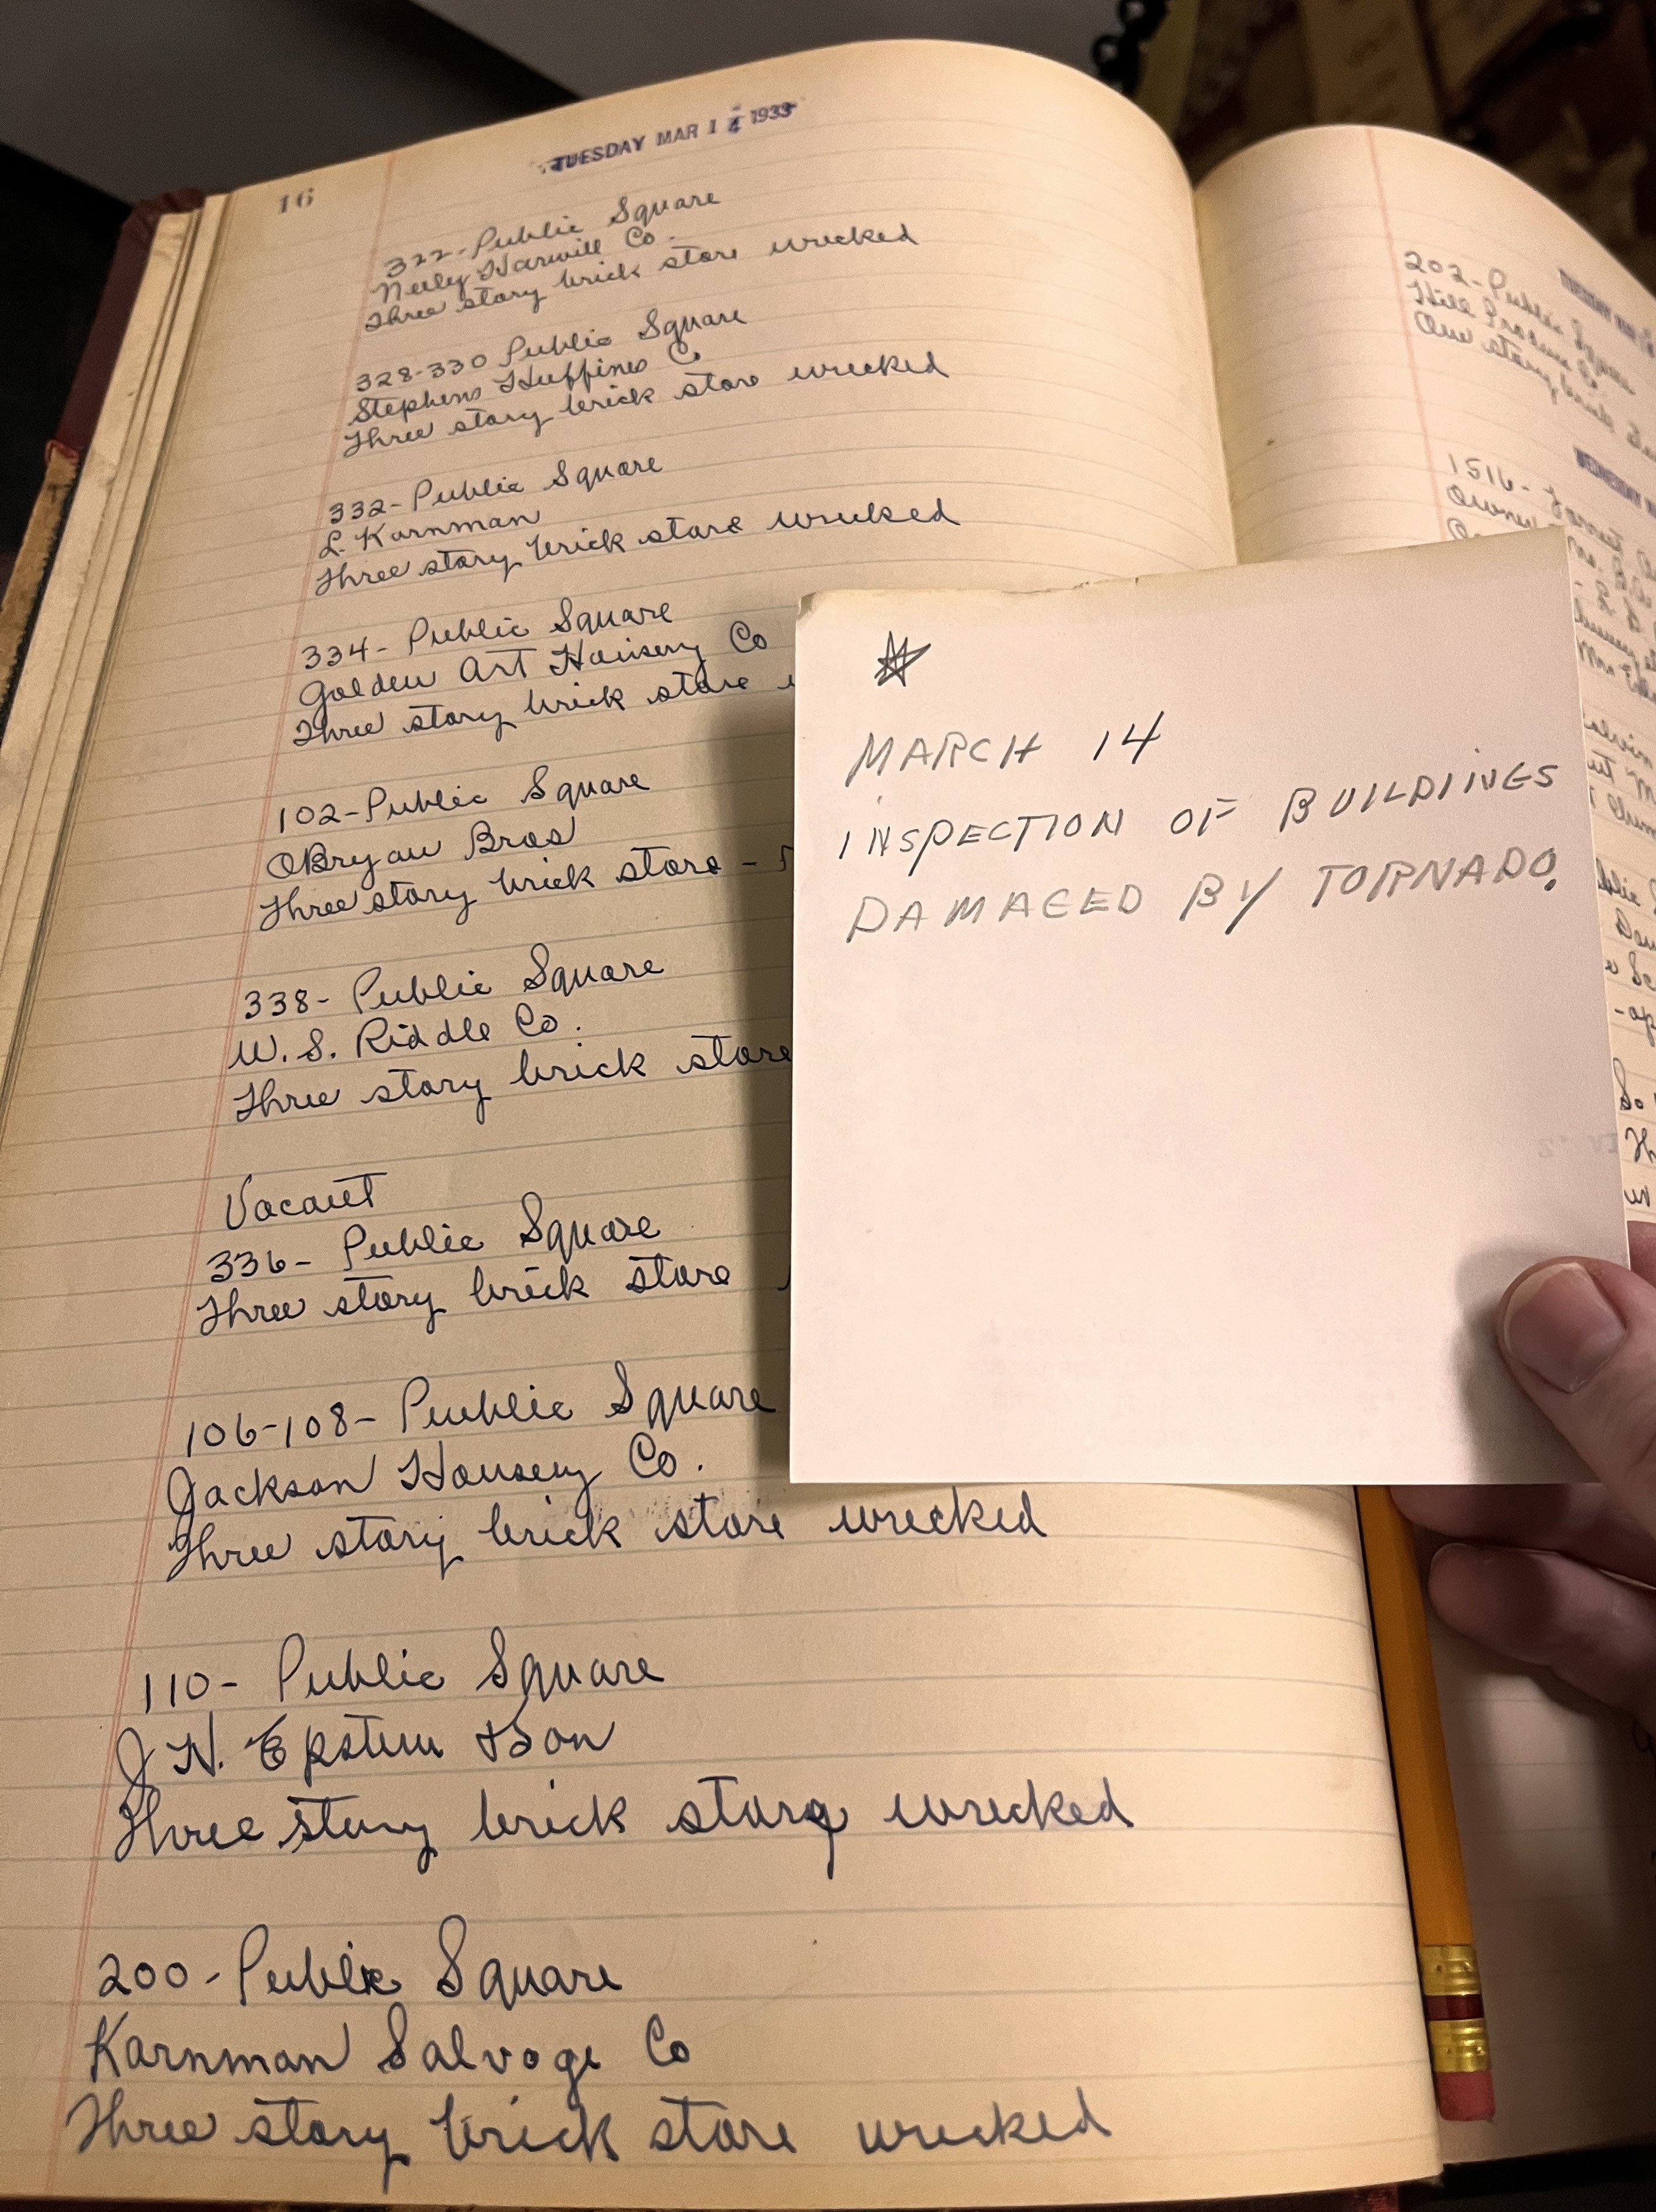 TUESDAY MAR 14 1933
16
322-Public Square
Neely Harwill Co.
Three story brick store wrecked
328-330 Public Square
Stephens Huffines Co
Three story brick store wrecked
332-Public Square
L. Karnman
Three story brick store wrecked
334- Public Square
Golden Art Hoisery Co
Three story brick store
102-Public Square
OBryan Bros
Three story brick store -
338- Public Square
W. S. Riddle Co.
Three story brick store
Vacant
336- Public Square
Three story brick store
106-108- Public Square
Jackson Housery Co.
Three story brick store wrecked
110- Public Square
J.N. Epstein & Son
Three story brick store wrecked
200-Public Square
Karnman Salvage Co
Three story brick store wrecked
MARCH 14
INSPECTION OF BUILDINGS
DAMAGED BY TORNADO.
TUESDAY MAR
202-Public Square
Hill Produce Co
One story brick
WEDNESDAY
1516-
Owner